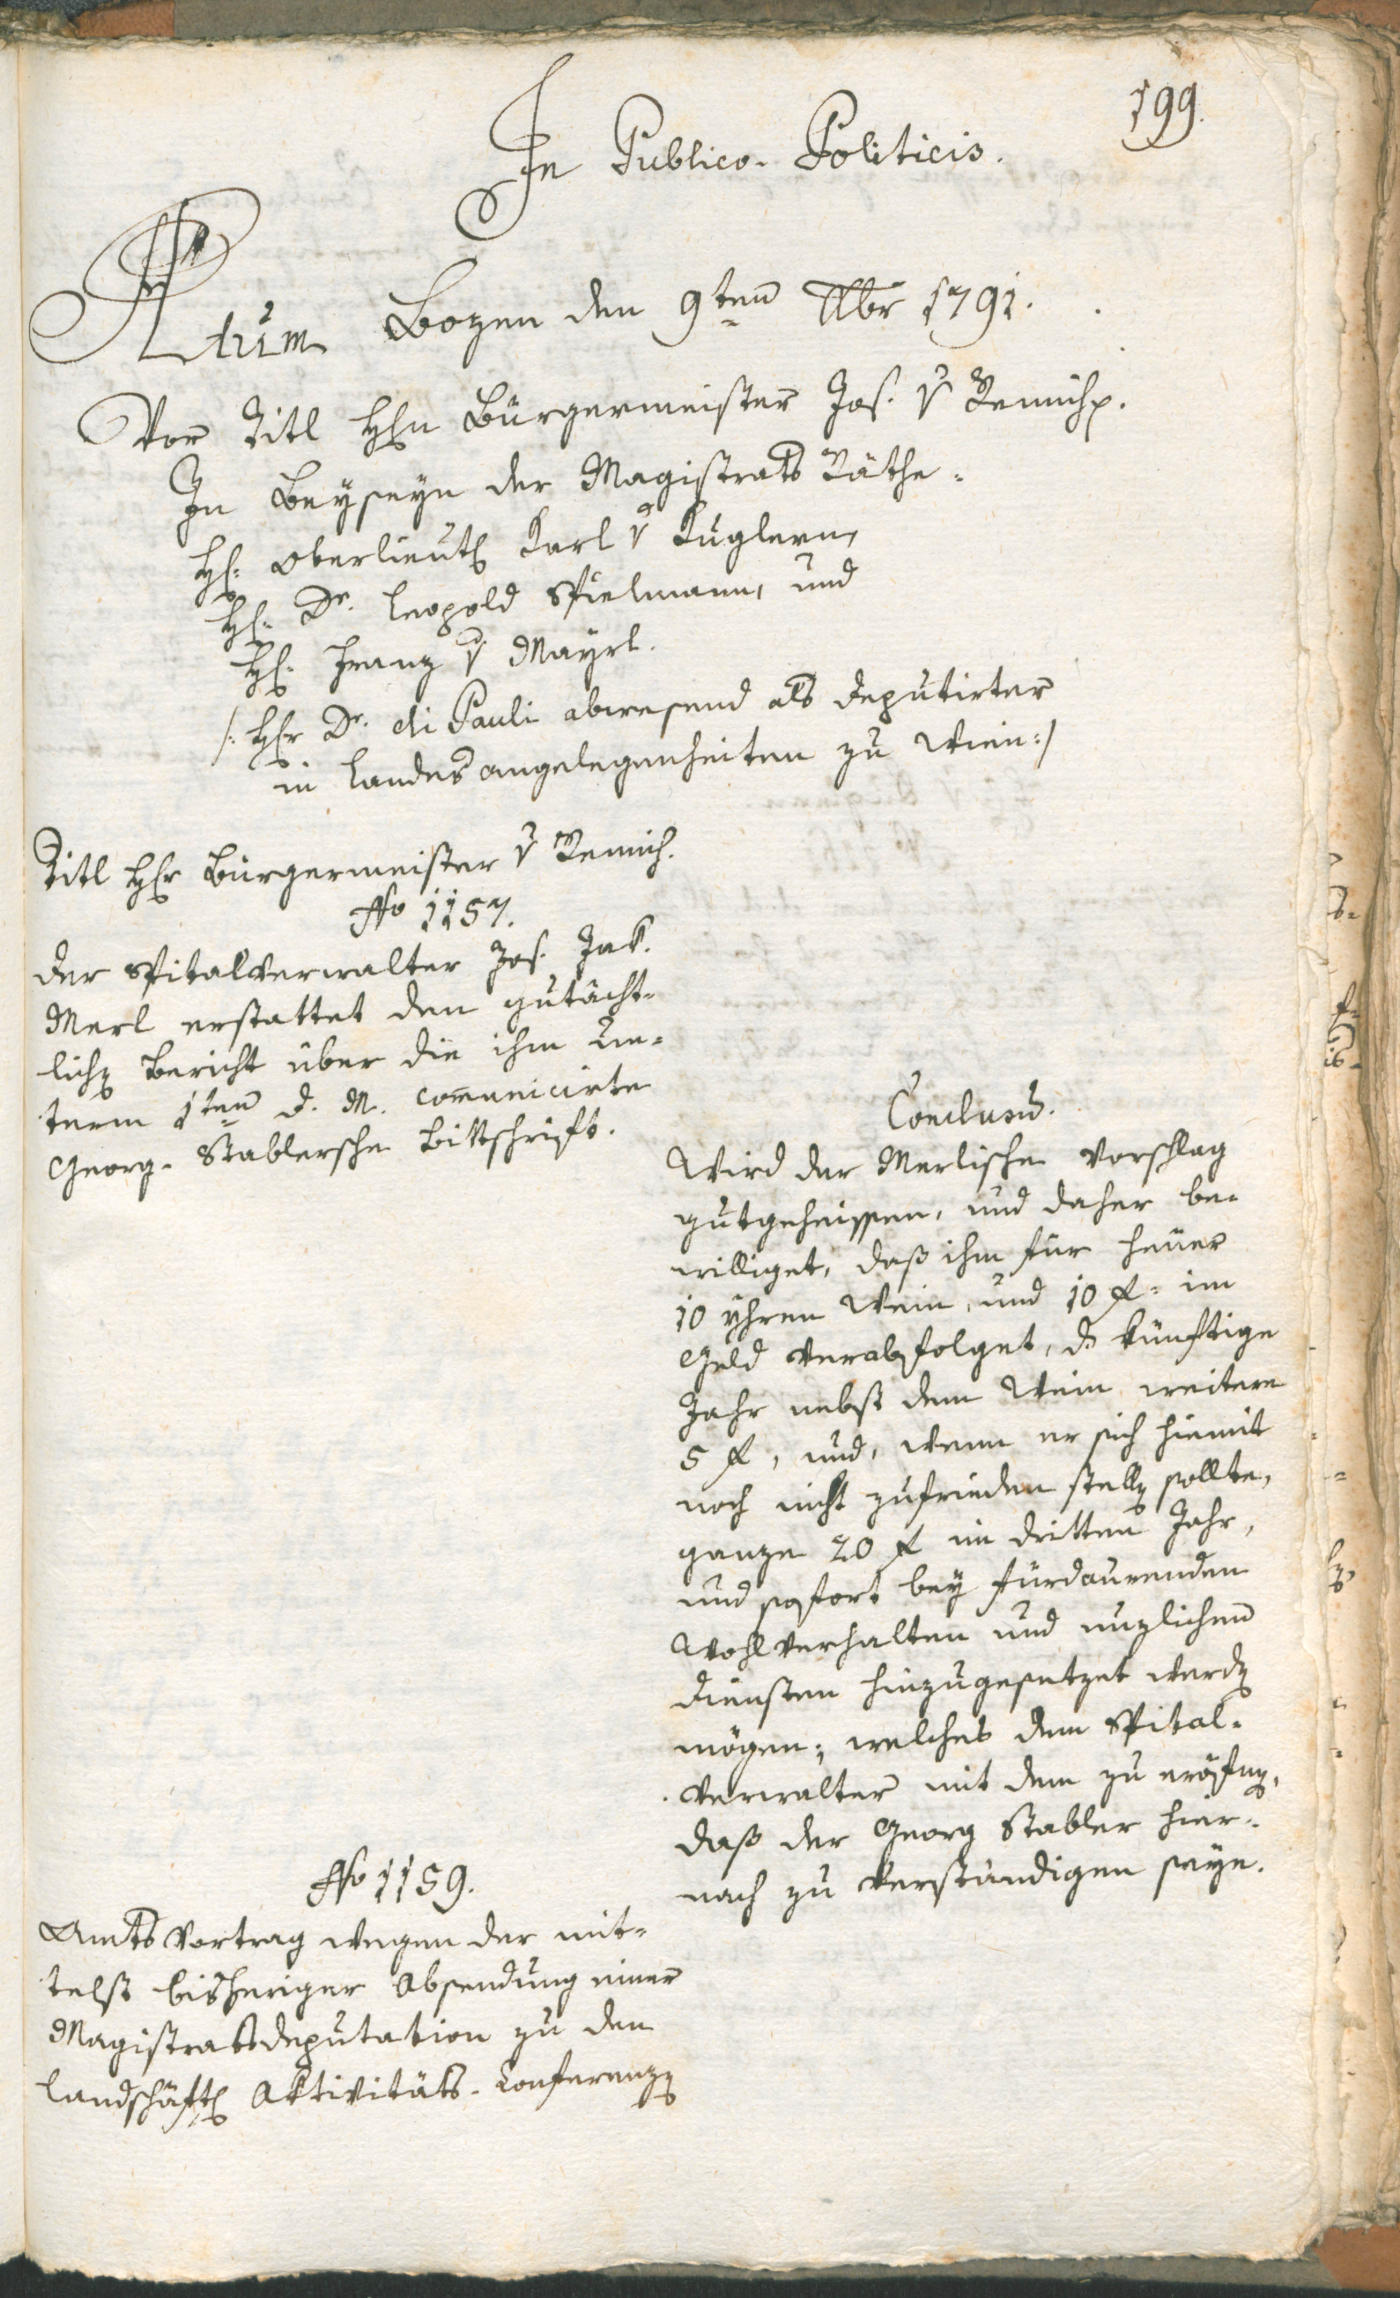 199.
In Publico-Politicis.
Actum Bozen den 9ten 9br 1791.
Vor Titl Hℓn Bürgermeister Jos. v Remich p.
In Beyseyn der Magistrats Räthe.
Hℓ: Oberlieutℓ Karl v Kuglern,
Hℓ. Dr. Leopold Spielmann, und
Hℓ. Franz v Mayrl.
/: Hℓr Dr. di Pauli abwesend als Deputirter
in Landesangelegenheiten zu Wien :/
Titl Hℓr Bürgermeister v Remich.
No 1157.
Der Spitalverwalter Jos. Jak.
Merl erstattet den gutächt-
lichen Bericht über die ihm Un-
term 1ten d. M. com̅unicirte
Georg-Stablersche Bittschrift.
Conclusum.
Wird der Merlische Vorschlag
gutgeheissen, und daher be-
williget, daß ihm für heuer
10 Yhren Wein, und 10 f. im
Geld verabfolget, ds künftige
Jahr nebst dem Wein weitere
5 f, und, wenn er sich hiemit
noch nicht zufrieden stellen sollte,
ganze 20 f im dritten Jahr,
und sofort bey fürdaurenden
Wohlverhalten und nuzlichen
Diensten hinzugesetzet werden
mögen; welches dem Spital-
verwalter mit dem zu eröfnen,
daß der Georg Stabler hier-
nach zu verständigen seye.
No 1159.
Amts Vortrag wegen der mit-
telst bisheriger Absendung einer
Magistratsdeputation zu den
landschäftℓ Aktivitäts-Conferenzen